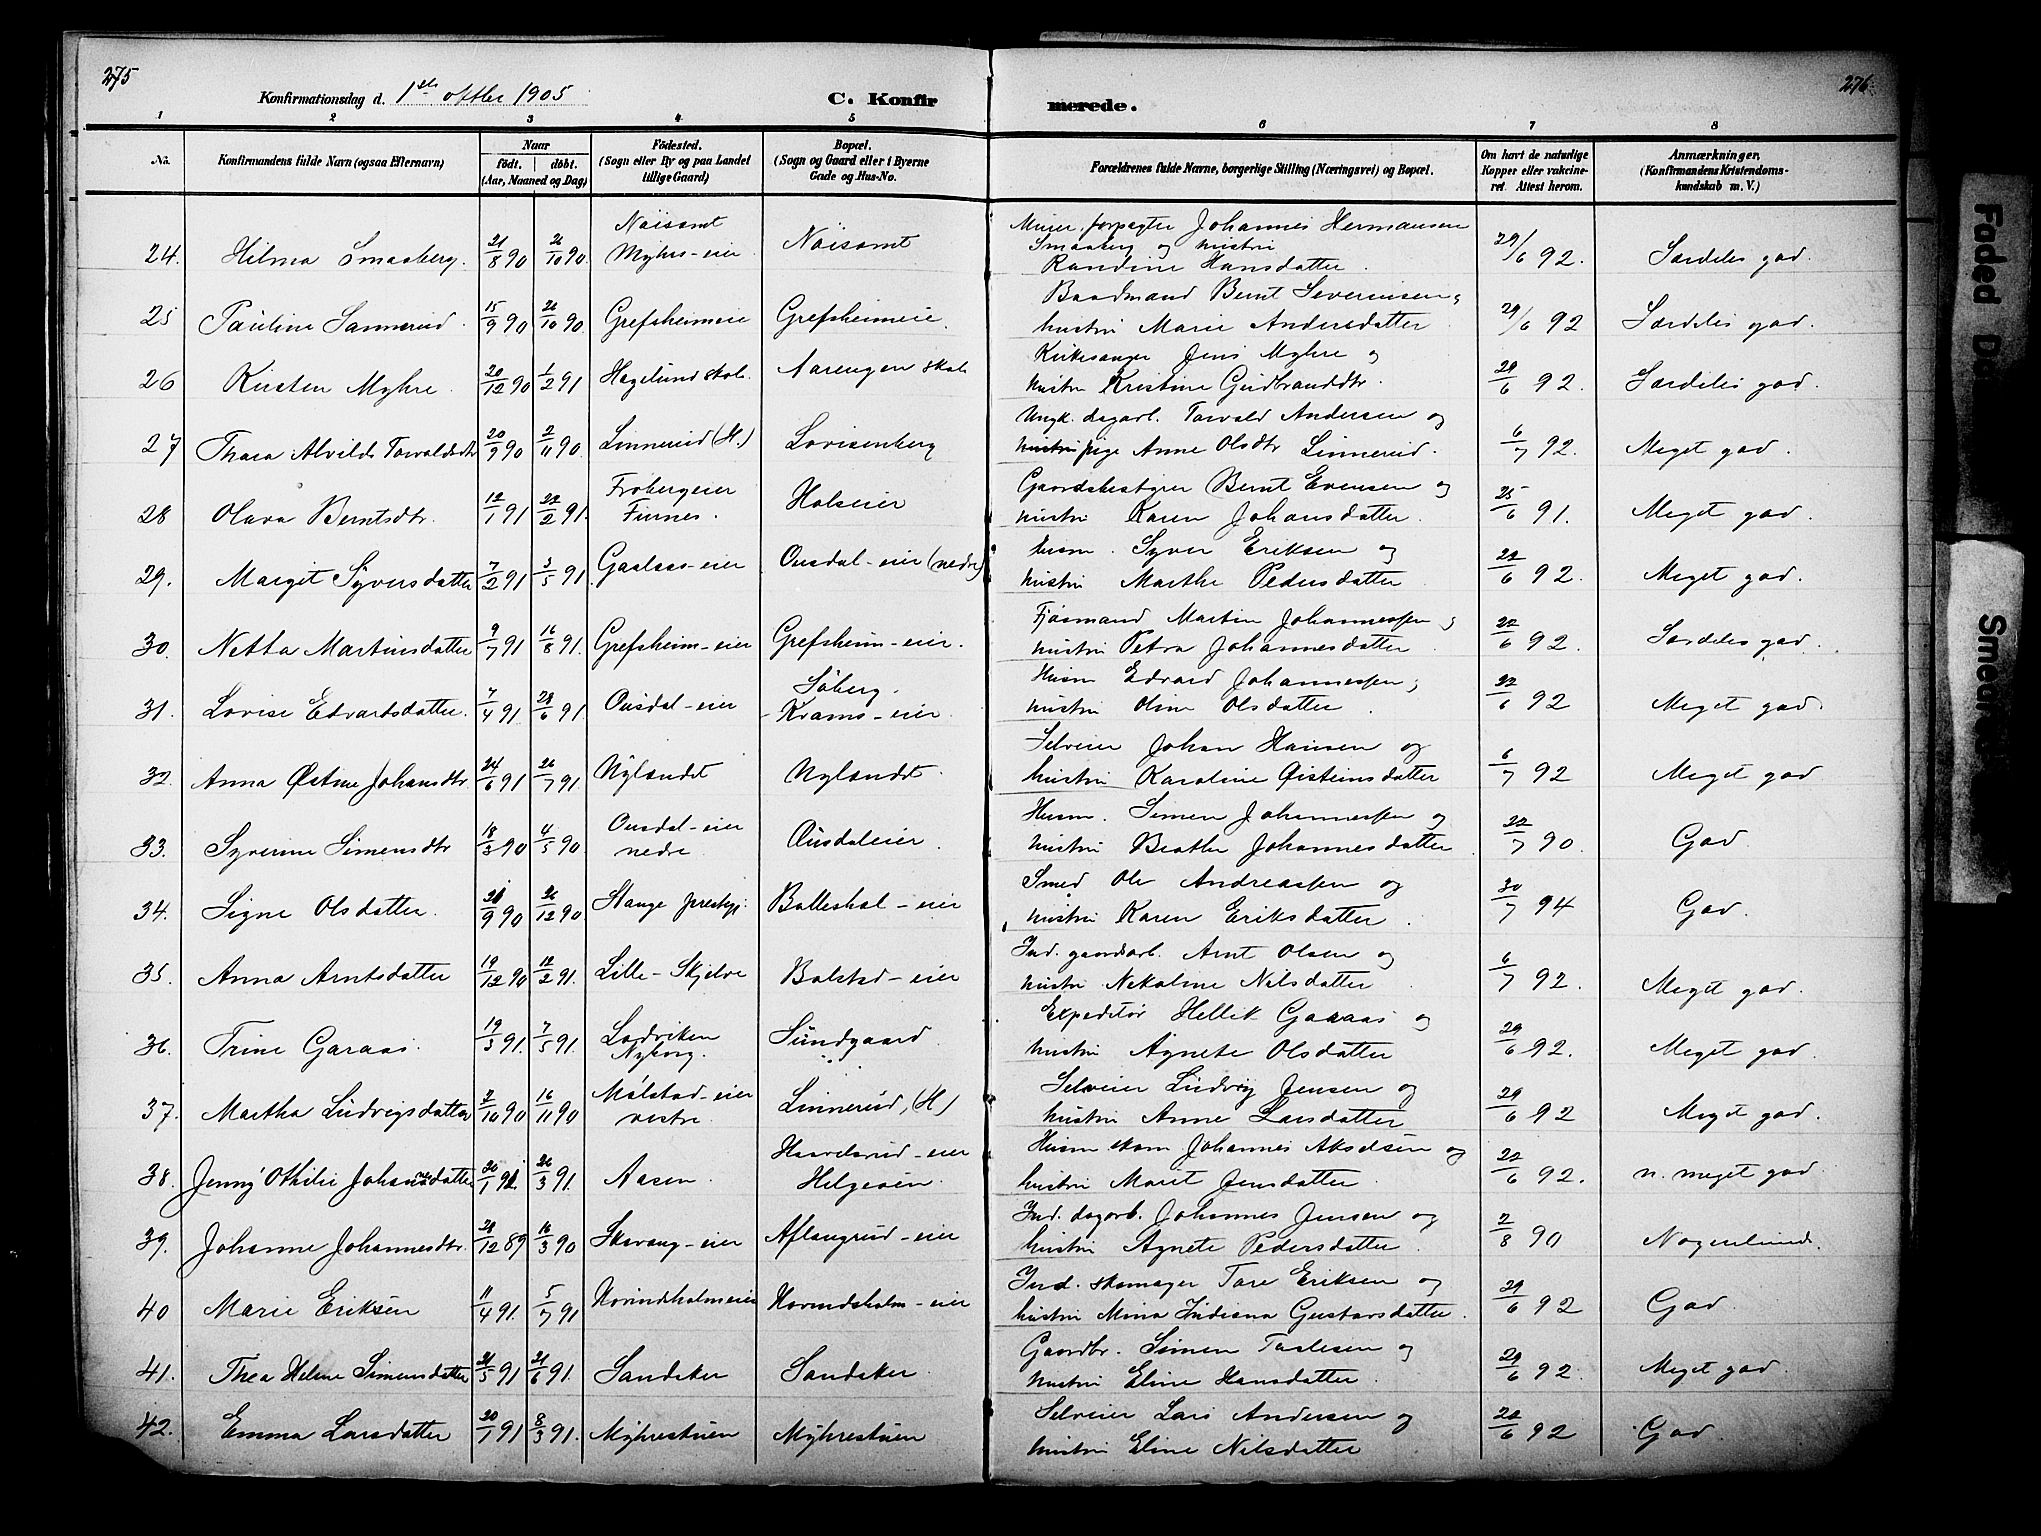 275
276
Konfirmationsdag d. 1ste oktbr 1905
C. Konfirmerede.
1 2 3 4 5 6 7 8
No. Konfirmandens fulde Navn (ogsaa Efternavn) Naar født. døbt. (Aar, Maaned og Dag) Fødested. (Sogn eller By og paa Landet tillige Gaard) Bopæl. (Sogn og Gaard eller i Byerne Gade og Hus-No. Forældrenes fulde Navne, borgerlige Stilling (Næringsvei) og Bopæl. Om havt de naturlige Kopper eller vakcineret. Attest herom. Anmærkninger. (Konfirmandens Kristendomskundskab m. V.)
24. Hilma Smaaberg. 21/8 90 26/10 90. Næisamt Myhrs-eier Næisamt Meier forpagter Johannes Hermansen Smaaberg og hustru Randine Hansdatter. 29/6 92. Særdeles god.
25 Pauline Sannerud. 15/9 90 26/10 90. Grefsheimeie Grefsheimeie. Baadmand Bernt Severinsen, hustru Marie Andersdatter. 29/6 92 Særdeles god.
26 Kirsten Myhre. 20/12 90 1/2 91 Hagelund skole Aarengen skole Kirkesanger Jens Myhre og hustru Kristine Gudbranddtr. 29/6 92. Særdeles god.
27 Thora Alvilde Torvaldsdtr 20/9 90 2/11 90. Linnerud (H.) Lovisenberg Ungk. dagarb. Torvald Andersen og pige Anne Olsdtr Linnerud. 6/7 92. Meget god.
28 Olava Berntsdtr. 12/1 91 22/2 91. Frobergeier Furnes. Holseier Gaardsbestyrer Bernt Evensen og hustru Karen Johansdatter. 25/6 91. Meget god.
29. Margit Syversdatter 7/2 91 3/5 91. Gaalaas-eier Ousdal-eier (nedre) Husm. Syver Eriksen og hustru Marthe Pedersdatter 22/6 92. Meget god.
30. Netta Martinsdatter 9/7 91 16/8 91. Grefsheim-eier Grefsheim-eier. Fjøsmand Martin Johannessen, hustru Petra Johannesdatter. 22/6 92. Særdeles god.
31. Lovise Edvartsdatter. 7/4 91 28/6 91 Ousdal-eier Søberg. Krams-eier Husm Edvard Johannessen, hustru Oline Olsdatter. 22/6 92 Meget god.
32. Anna Østine Johansdtr. 24/6 91 26/7 91. Nylændet Nylændet. Selveier Johan Hansen og hustru Karoline Østeinsdatter 6/7 92 Meget god
33. Syverine Simensdtr 18/3 90 4/5 90. Ousdal-eier nedre. Ousdaleier. Husm. Simen Johannessen og hustru Beathe Johannesdatter. 22/7 90. God
34. Signe Olsdatter. 21/9 90 26/12 90 Stange prestgj. Balleshol-eier Smed Ole Andreassen og hustru Karen Eriksdatter. 30/7 94 God.
35. Anna Arntsdatter 19/12 90 12/2 91. Lille-Skjelve Bolstad-eier Ind. gaardsarb. Arnt Olsen og hustru Nekoline Nilsdatter. 6/7 92. Meget god.
36. Trine Garaas. 19/3 91. 7/5 91. Lodviken Nyborg. Sundgaard. Expeditør Hellik Garaas og hustru Agnete Olsdatter 29/6 92. Meget god.
37. Martha Ludvigsdatter 2/10 90 16/11 90 Mølstad-eier vestre. Linnerud, (H) Selveier Ludvig Jensen og hustru Anne Larsdatter 29/6 92 Meget god.
38. Jenny Othilie Johannesdatter 20/1 91 26/3 91. Aasen. Haavelsrud-eier Helgeøen. Husm skom Johannes Akselsen og hustru Marit Jensdatter. 22/6 92. n. meget god.
39. Johanne Johannesdtr. 29/12 89 16/3 90 Skavang-eier Aflangrud-eier Ind. dagarb. Johannes Jensen og hustru Agnete Pedersdatter. 2/8 90 Nogenlunde.
40 Marie Eriksen 11/4 91. 5/7 91 Hovindsholmeier Hovindsholm-eier Ind. skomager Tore Eriksen og hustru Mina Indiana Gustavsdatter. 29/6 92 God.
41. Thea Helene Simensdatter 21/5 91 21/6 91. Sandaker Sandaker. Gaardbr. Simen Taalesen og hustru Eline Hansdatter. 29/6 92. Meget god.
42. Emma Larsdatter 20/1 91 8/3 91. Myhrestuen Myhrestuen Selveier Lars Andersen og hustru Eline Nilsdatter 22/6 92 God.